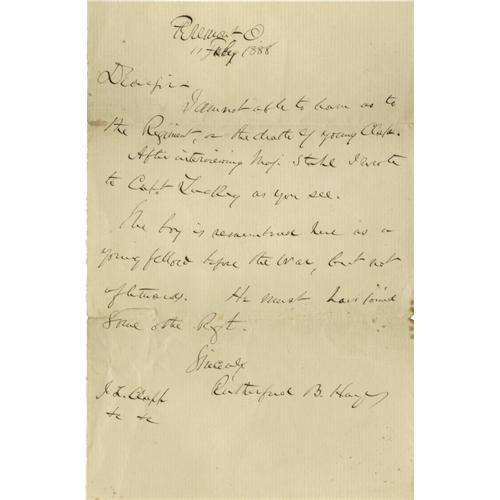 Fremont O.
11 July 1888
Dear Sir -
I am not able to learn as to
the Regiment, or the death of young Clapp.
After interviewing Maj. Stahl I wrote
to Capt Luckey as you see.
The boy is remembered here as a
young fellow before the War, but not
afterwards. He must have joined
some other Regt.
Sincerely
Rutherford B. Hayes
J. L. Clapp
&c &c